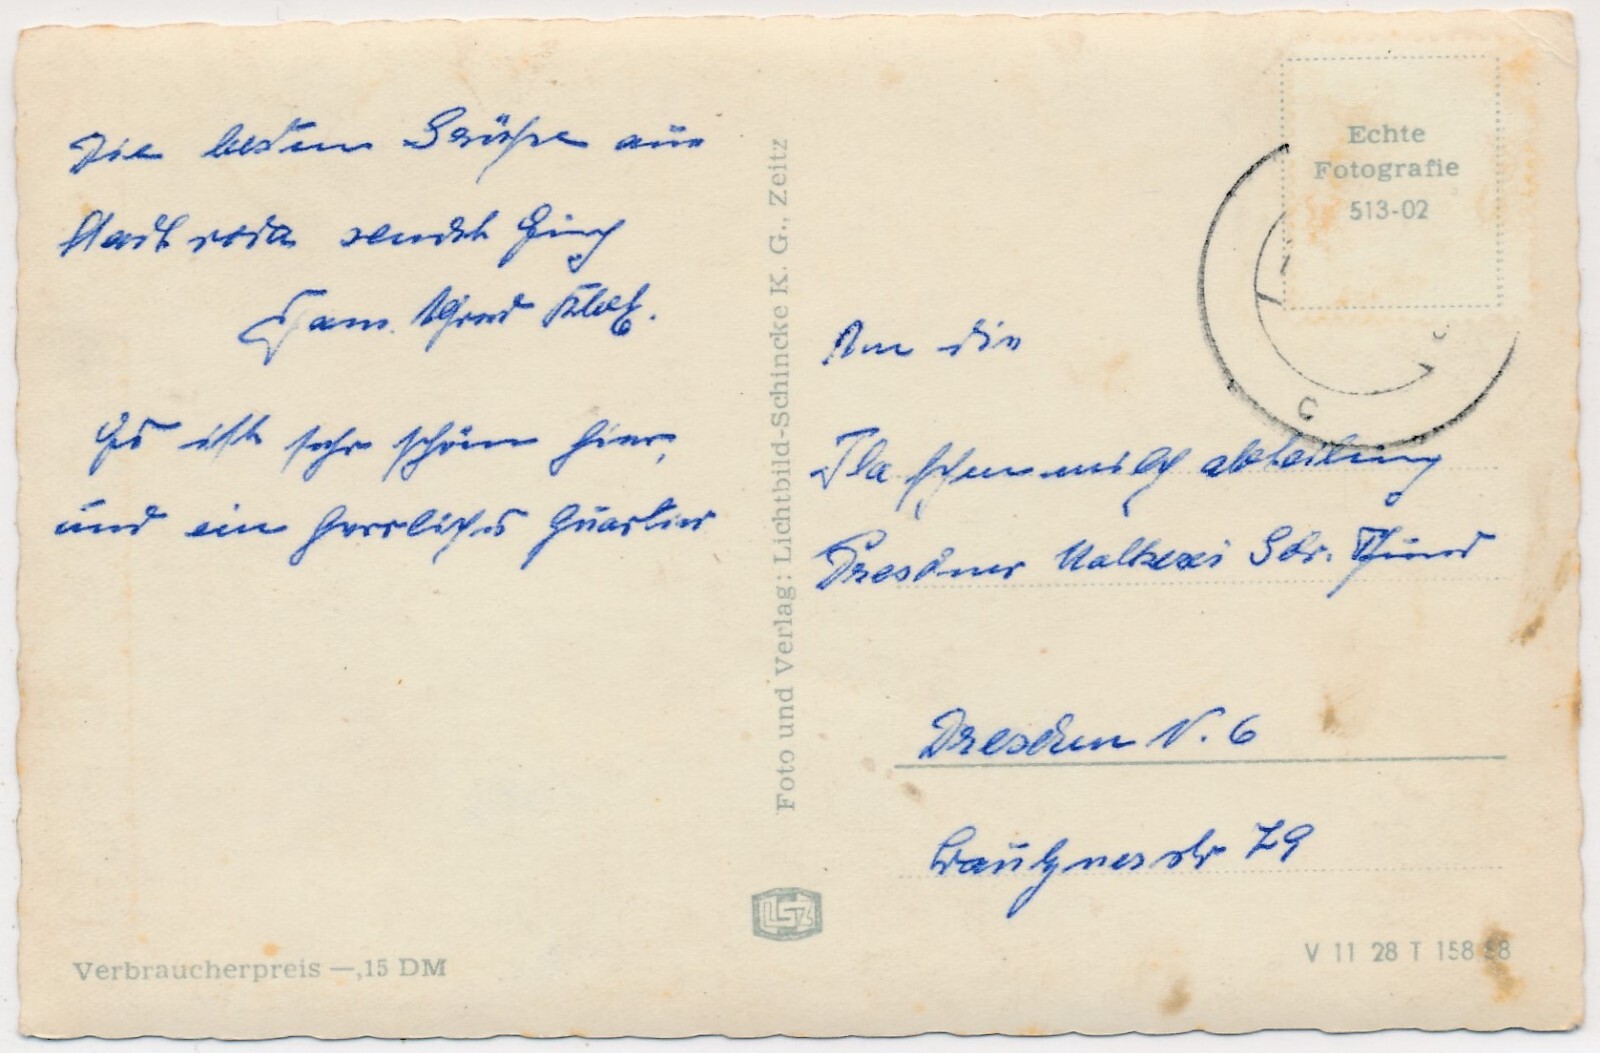 Die besten Grüße aus
Stadtroda sendet Euch
Fam.
Es ist sehr schön hier,
und ein herrliches Quartier
Foto und Verlag: Lichtbild-Schincke K. G., Zeitz
Echte
Fotografie
513-02
An die
Flaschenmilchabteilung
Dresdner Molkerei Gbr. Pfund
Dresden N. 6
Bautznerstr 79
LSZ
Verbraucherpreis —,15 DM
V 11 28 T 158 58